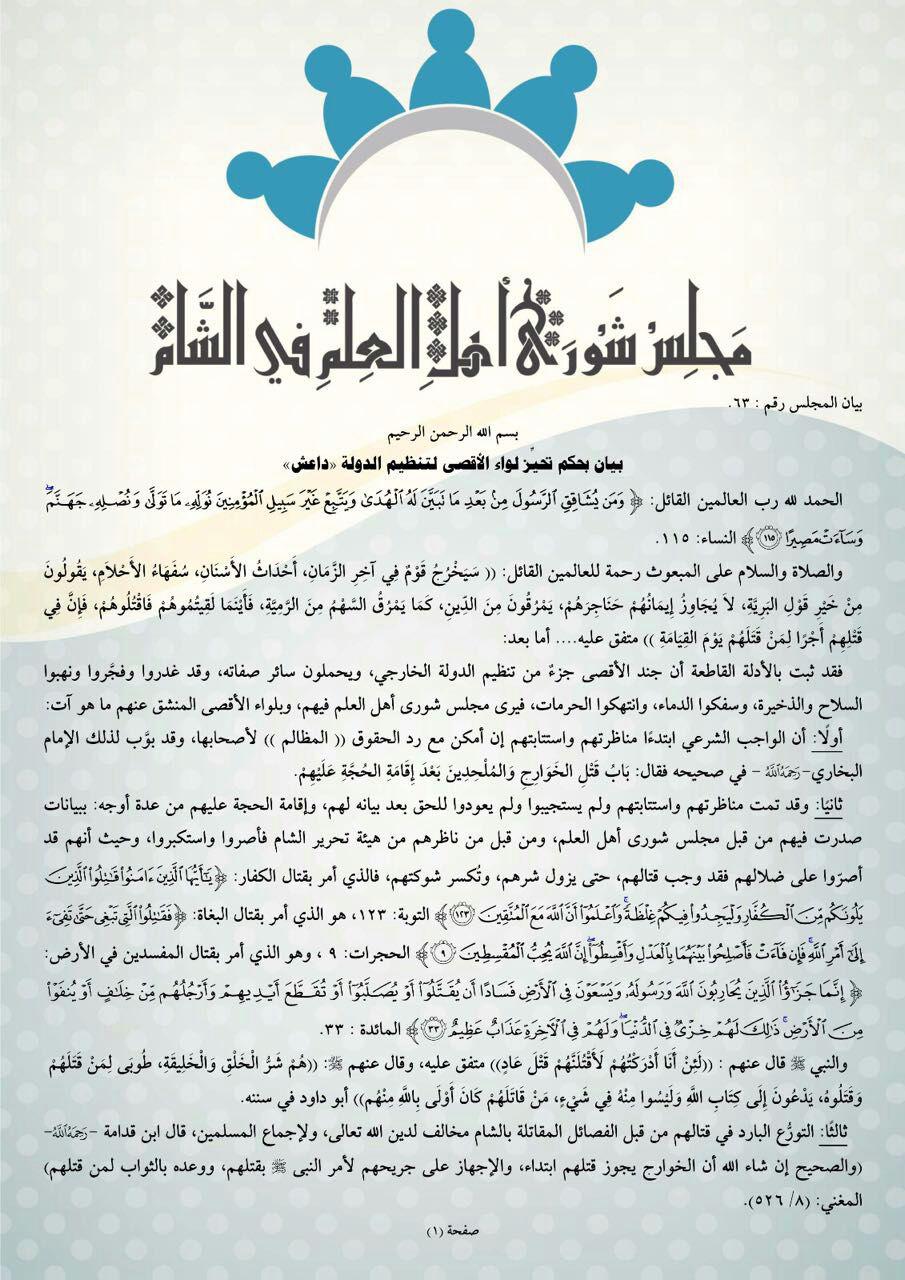 مَجلِسُ شَورَى أهلِ العِلمِ في الشَّام
بيان المجلس رقم : ٦٣.
بسم الله الرحمن الرحيم
بيان بحكم تحيّز لواء الأقصى لتنظيم الدولة «داعش»
الحمد لله رب العالمين القائل: ﴿ وَمَن يُشَاقِقِ الرَّسُولَ مِنۢ بَعْدِ مَا تَبَيَّنَ لَهُ الْهُدَىٰ وَيَتَّبِعْ غَيْرَ سَبِيلِ الْمُؤْمِنِينَ نُوَلِّهِۦ مَا تَوَلَّىٰ وَنُصْلِهِۦ جَهَنَّمَ ۖ
وَسَآءَتْ مَصِيرًا ﴿١١٥﴾ ﴾ النساء: ١١٥.
والصلاة والسلام على المبعوث رحمة للعالمين القائل: (( سَيَخْرُجُ قَوْمٌ فِي آخِرِ الزَّمَانِ، أَحْدَاثُ الأَسْنَانِ، سُفَهَاءُ الأَحْلاَمِ، يَقُولُونَ
مِنْ خَيْرِ قَوْلِ البَرِيَّةِ، لاَ يُجَاوِزُ إِيمَانُهُمْ حَنَاجِرَهُمْ، يَمْرُقُونَ مِنَ الدِّينِ، كَمَا يَمْرُقُ السَّهْمُ مِنَ الرَّمِيَّةِ، فَأَيْنَمَا لَقِيتُمُوهُمْ فَاقْتُلُوهُمْ، فَإِنَّ فِي
قَتْلِهِمْ أَجْرًا لِمَنْ قَتَلَهُمْ يَوْمَ القِيَامَةِ )) متفق عليه.... أما بعد:
فقد ثبت بالأدلة القاطعة أن جند الأقصى جزءٌ من تنظيم الدولة الخارجي، ويحملون سائر صفاته، وقد غدروا وفجَّروا ونهبوا
السلاح والذخيرة، وسفكوا الدماء، وانتهكوا الحرمات، فيرى مجلس شورى أهل العلم فيهم، وبلواء الأقصى المنشق عنهم ما هو آت:
أولًا: أن الواجب الشرعي ابتدءًا مناظرتهم واستتابتهم إن أمكن مع رد الحقوق (( المظالم )) لأصحابها، وقد بوَّب لذلك الإمام
البخاري-رَحِمَهُ اللهُ - في صحيحه فقال: بَابُ قَتْلِ الخَوَارِجِ وَالمُلْحِدِينَ بَعْدَ إِقَامَةِ الحُجَّةِ عَلَيْهِمْ.
ثانيًا: وقد تمت مناظرتهم واستتابتهم ولم يستجيبوا ولم يعودوا للحق بعد بيانه لهم، وإقامة الحجة عليهم من عدة أوجه: ببيانات
صدرت فيهم من قبل مجلس شورى أهل العلم، ومن قبل من ناظرهم من هيئة تحرير الشام فأصروا واستكبروا، وحيث أنهم قد
أصرَوا على ضلالهم فقد وجب قتالهم، حتى يزول شرهم، وتُكسر شوكتهم، فالذي أمر بقتال الكفار: ﴿ يَـٰٓأَيُّهَا الَّذِينَ ءَامَنُوا۟ قَـٰتِلُوا۟ الَّذِينَ
يَلُونَكُم مِّنَ الْكُفَّارِ وَلْيَجِدُوا۟ فِيكُمْ غِلْظَةً ۚ وَاعْلَمُوٓا۟ أَنَّ اللَّهَ مَعَ الْمُتَّقِينَ ﴿١٢٣﴾ ﴾ التوبة: ١٢٣، هو الذي أمر بقتال البغاة: ﴿ فَقَـٰتِلُوا۟ الَّتِى تَبْغِى حَتَّىٰ تَفِىٓءَ
إِلَىٰٓ أَمْرِ اللَّهِ ۚ فَإِن فَآءَتْ فَأَصْلِحُوا۟ بَيْنَهُمَا بِالْعَدْلِ وَأَقْسِطُوٓا۟ ۖ إِنَّ اللَّهَ يُحِبُّ الْمُقْسِطِينَ ﴿٩﴾ ﴾ الحجرات: ٩ ، وهو الذي أمر بقتال المفسدين في الأرض:
﴿ إِنَّمَا جَزَٰٓؤُا۟ الَّذِينَ يُحَارِبُونَ اللَّهَ وَرَسُولَهُۥ وَيَسْعَوْنَ فِى الْأَرْضِ فَسَادًا أَن يُقَتَّلُوٓا۟ أَوْ يُصَلَّبُوٓا۟ أَوْ تُقَطَّعَ أَيْدِيهِمْ وَأَرْجُلُهُم مِّنْ خِلَـٰفٍ أَوْ يُنفَوْا۟
مِنَ الْأَرْضِ ۚ ذَٰلِكَ لَهُمْ خِزْىٌ فِى الدُّنْيَا ۖ وَلَهُمْ فِى الْآخِرَةِ عَذَابٌ عَظِيمٌ ﴿٣٣﴾ ﴾ المائدة : ٣٣.
والنبي ﷺ قال عنهم : ((لَئِنْ أَنَا أَدْرَكْتُهُمْ لَأَقْتُلَنَّهُمْ قَتْلَ عَادٍ)) متفق عليه، وقال عنهم ﷺ: ((هُمْ شَرُّ الْخَلْقِ وَالْخَلِيقَةِ، طُوبَى لِمَنْ قَتَلَهُمْ
وَقَتَلُوهُ، يَدْعُونَ إِلَى كِتَابِ اللَّهِ وَلَيْسُوا مِنْهُ فِي شَيْءٍ، مَنْ قَاتَلَهُمْ كَانَ أَوْلَى بِاللَّهِ مِنْهُم)) أبو داود في سننه.
ثالثًا: التورُّع البارد في قتالهم من قبل الفصائل المقاتلة بالشام مخالف لدين الله تعالى، ولإجماع المسلمين، قال ابن قدامة -رَحِمَهُ اللهُ-
(والصحيح إن شاء الله أن الخوارج يجوز قتلهم ابتداء، والإجهاز على جريحهم لأمر النبى ﷺ بقتلهم، ووعده بالثواب لمن قتلهم)
المغني: (٨/ ٥٢٦).
صفحة (١)